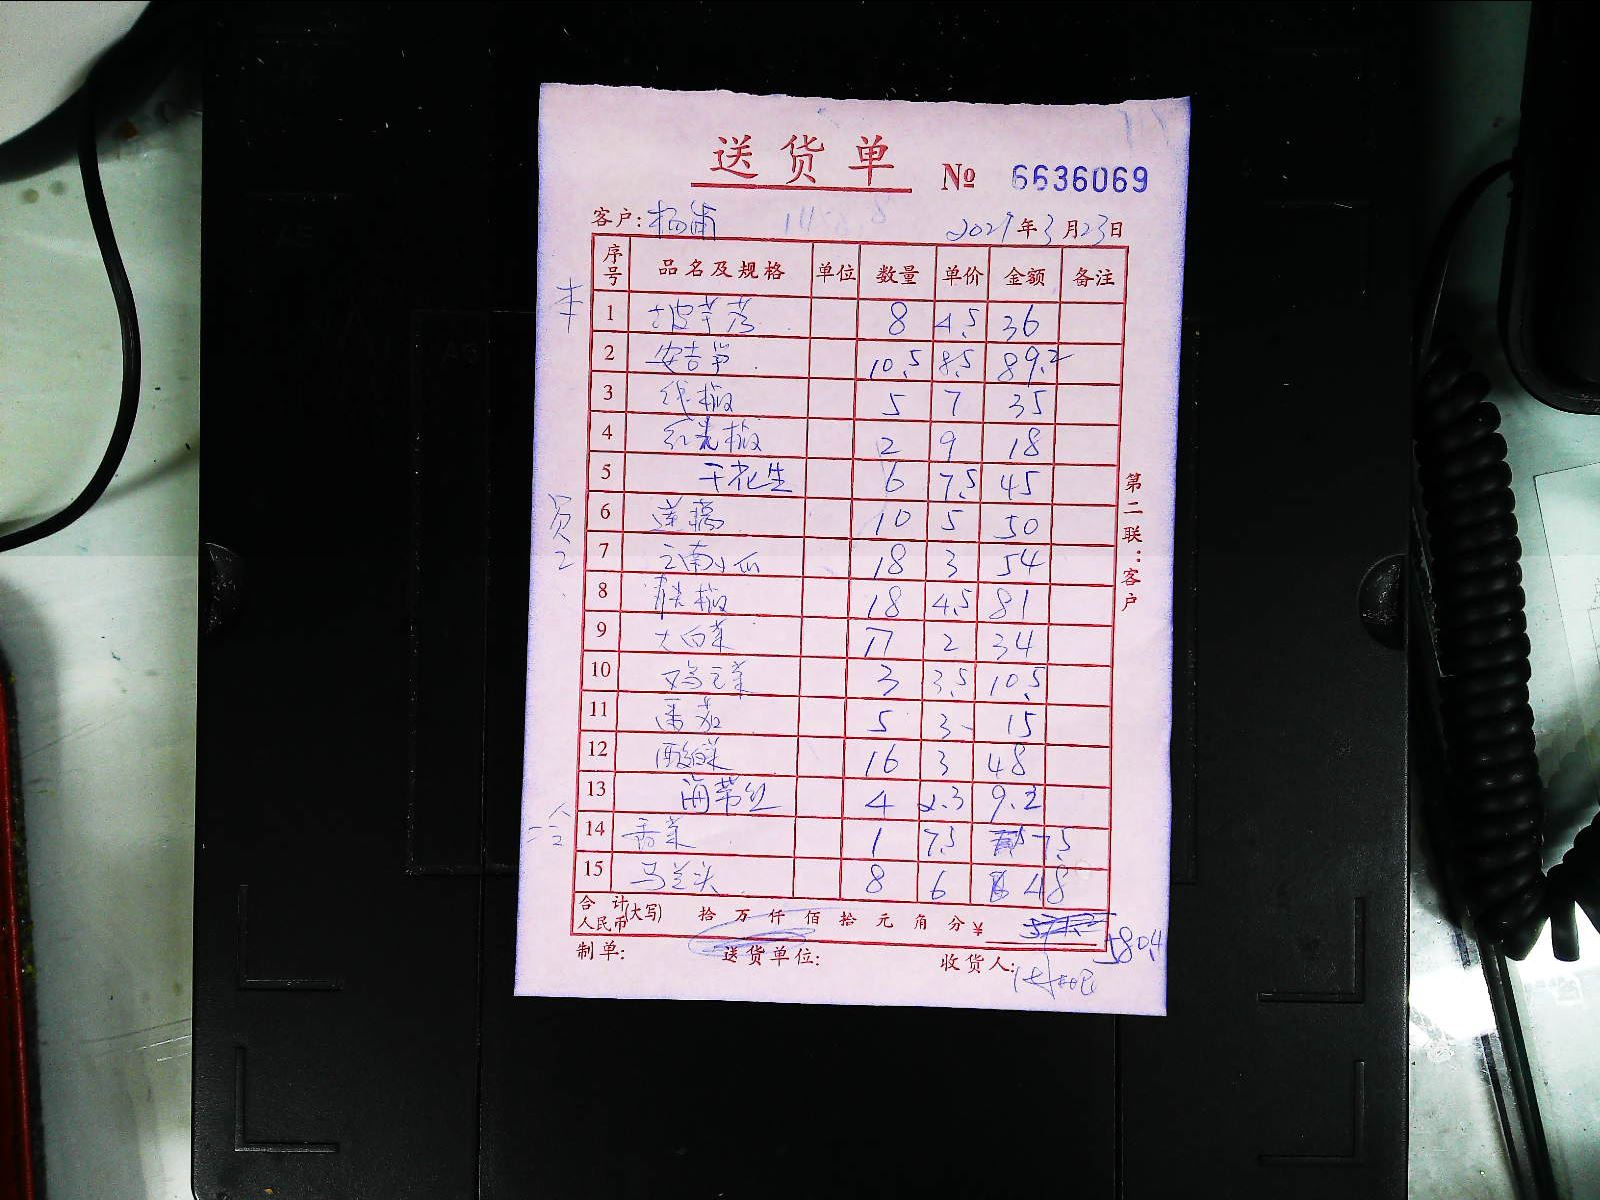 送货单 № 6636069
客户: 杨浦 2021年3月23日
序号 品名及规格 单位 数量 单价 金额 备注
本
1 8 4.5 36
2 安吉笋 10.5 8.5 89.2
3 线椒 5 7 35
4 红尖椒 2 9 18
5 干花生 6 7.5 45
6 莲藕 10 5 50
7 云南小瓜 18 3 54
8 青尖椒 18 4.5 81
9 大白菜 17 2 34
10 鸡毛菜 3 3.5 10.5
11 番茄 5 3- 15
12 酸菜 16 3 48
13 海带丝 4 2.3 9.2
14 香菜 1 7.5 7.5
15 马兰头 8 6 48
合计人民币(大写) 拾 万 仟 佰 拾 元 角 分 ¥ 580.4
制单: 送货单位: 收货人:
第二联：客户